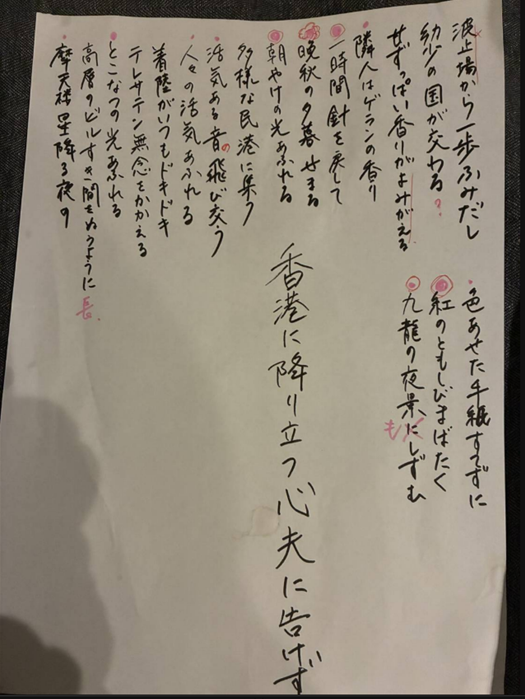 波止場から一歩ふみだし
幼少の国が交わる?
せずっぱい香りがよみがえる
隣人はゲランの香り
一時間針を戻して
晩秋の夕暮せまる
朝やけの光あふれる
多様な民港に集う
活気ある音の飛び交う
人々の活気あふれる
着陸がいつもドキドキ
テレサテン無念をかかえる
とこなつの光あふれる
高層のビルすき間をぬうように 長
摩天楼星降る夜の
香港に降り立つ心夫に告げず
色あせた手紙すてずに
紅のともしびまばたく
九龍の夜景にしずむ
も